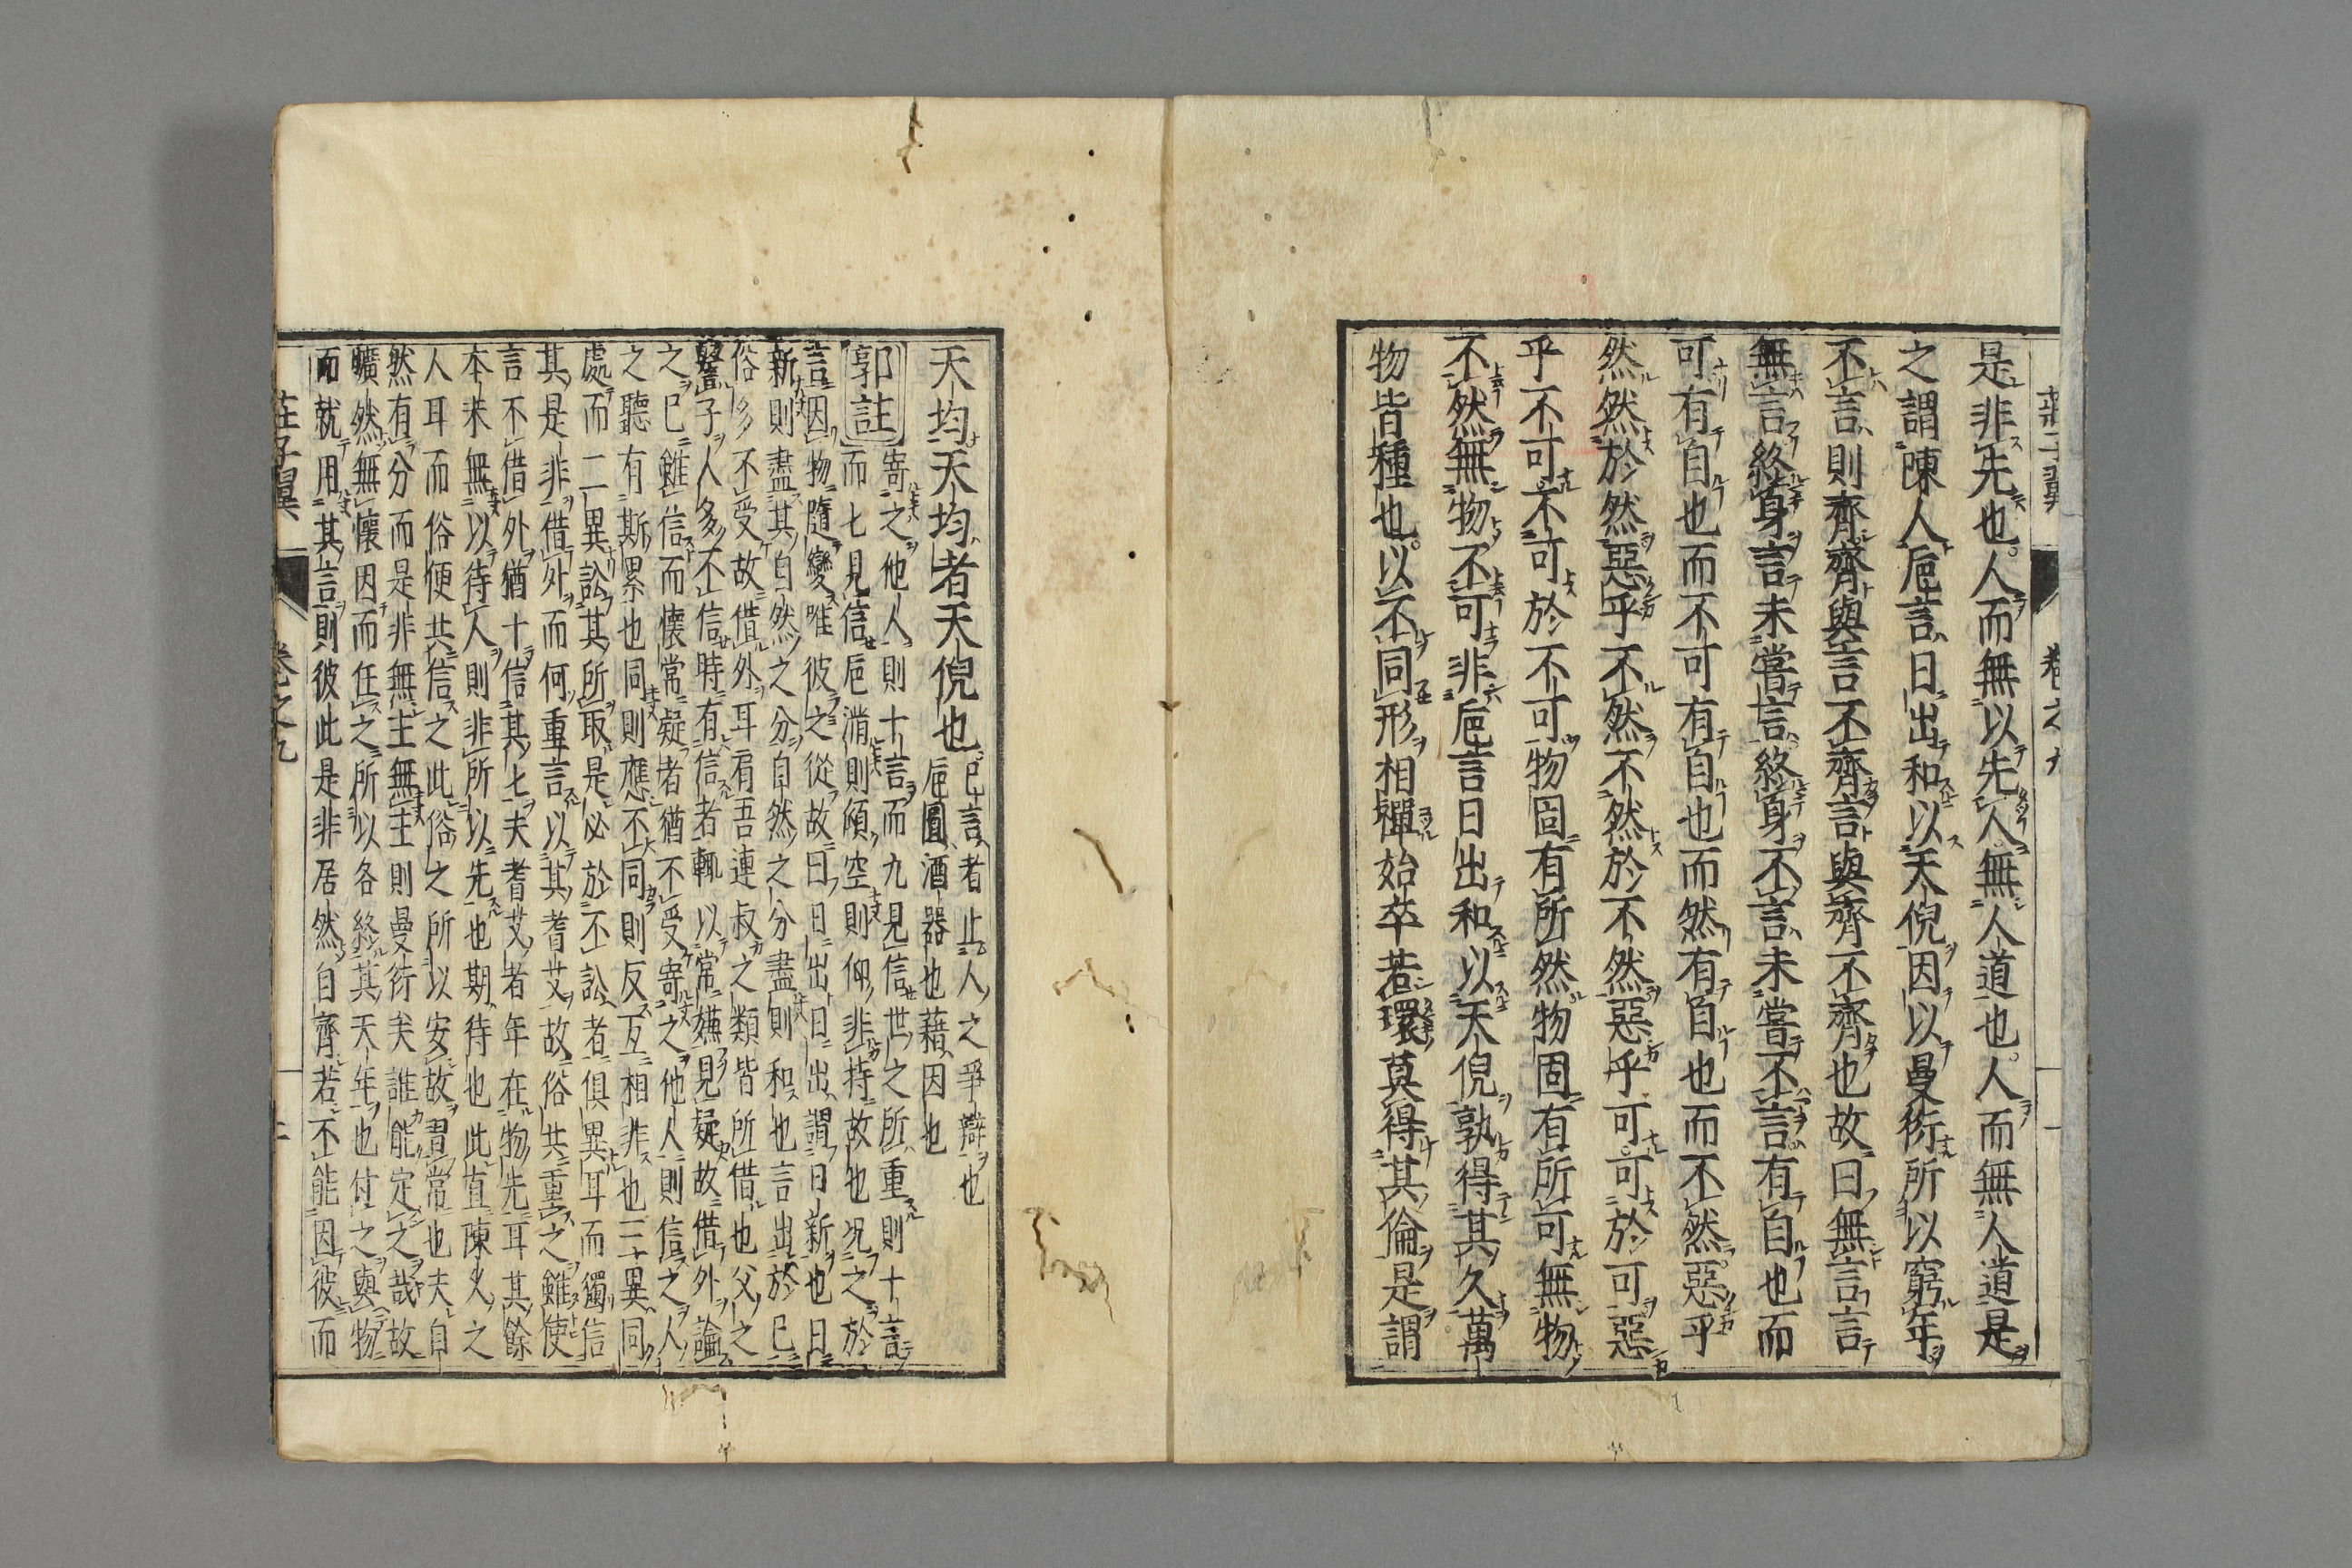 莊子翼 卷之九 一
是非先也。人而無以先人無人道也。人而無人道是
之謂陳人巵言日出和以天倪因以曼衍所以窮年
不言則齊齊與言不齊言與齊不齊也故曰無言言
無言終身言未嘗言終身不言未嘗不言有自也而
可有自也而不可有自也而然有自也而不然惡乎
然然於然惡乎不然不然於不然惡乎可可於可惡
乎不可不可於不可物固有所然物固有所可無物
不然無物不可非巵言日出和以天倪孰得其久萬
物皆種也。以不同形相禪始卒若環莫得其倫是謂
天均天均者天倪也
已言者止人之爭辯也
巵圓酒器也藉因也
郭註 寄之他人則十言而九見信世之所重則十言
而七見信巵滿則傾空則仰非持故也况之於
言因物隨變唯彼之從故曰日出日出謂日新也日
新則盡其自然之分自然之分盡則和也言出於已
俗多不受故借外耳肩吾連叔之類皆所借也父之
譽子人多不信時有信者輒以常嫌見疑故借外論
之已雖信而懷常疑者猶不受寄之他人則信之人
之聽有斯累也同則應不同則反互相非也三異同
處而二異訟其所取是必於不訟者俱異耳而獨信
其是非借外而何重言以其耆艾故俗共重之雖使
言不借外猶十信其七夫耆艾者年在物先耳其餘
本末無以待人則非所以先也期待也此直陳久之
人耳而俗便共信之此俗之所以安故習常也夫自
然有分而是非無主無主則曼衍矣誰能定之哉故
曠然無懷因而任之所以各終其天年也付之與物
而就用其言則彼此是非居然自齊若不能因彼而
莊子翼 卷之九